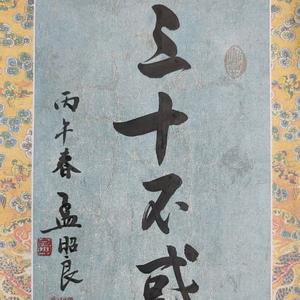 三十不惑
丙午春 孟昭良